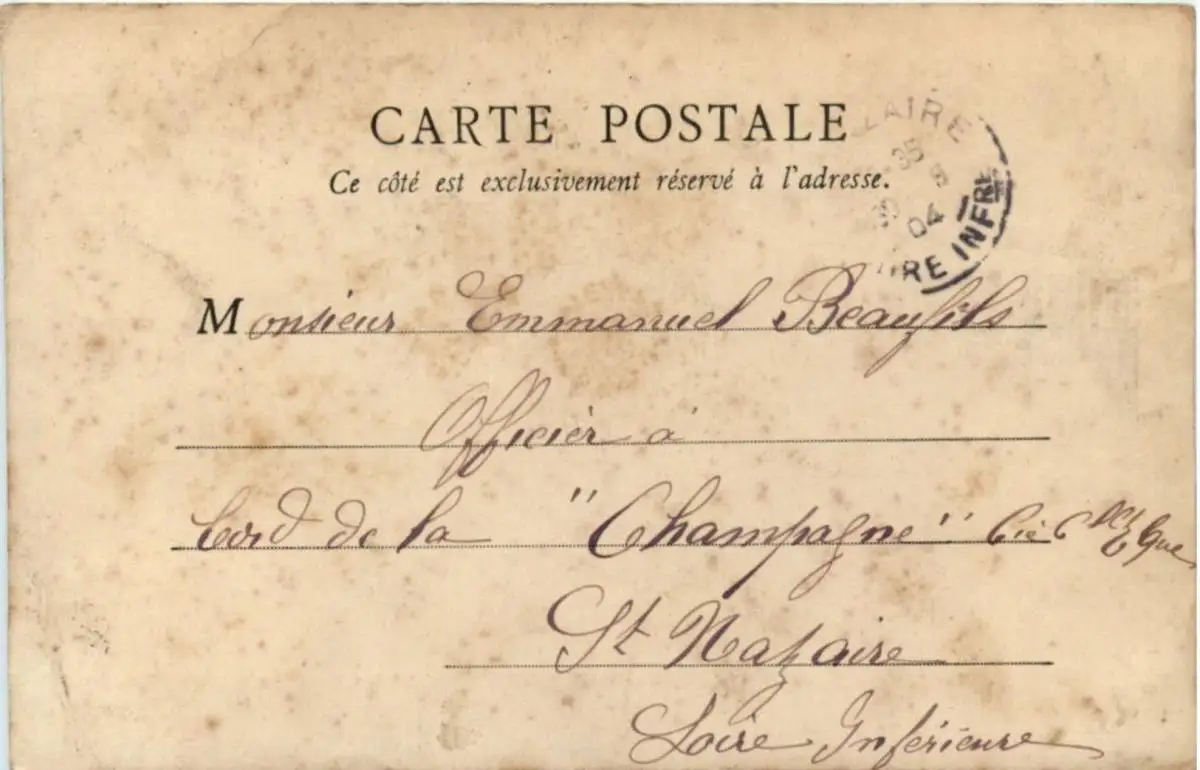 CARTE POSTALE
Ce côté est exclusivement réservé à l'adresse.
LAIRE
35
8
04
RE INFRE
Monsieur Emmanuel Beaufils
Officier à
bord de la "Champagne" Cie Gle
St Nazaire
Loire Inférieure